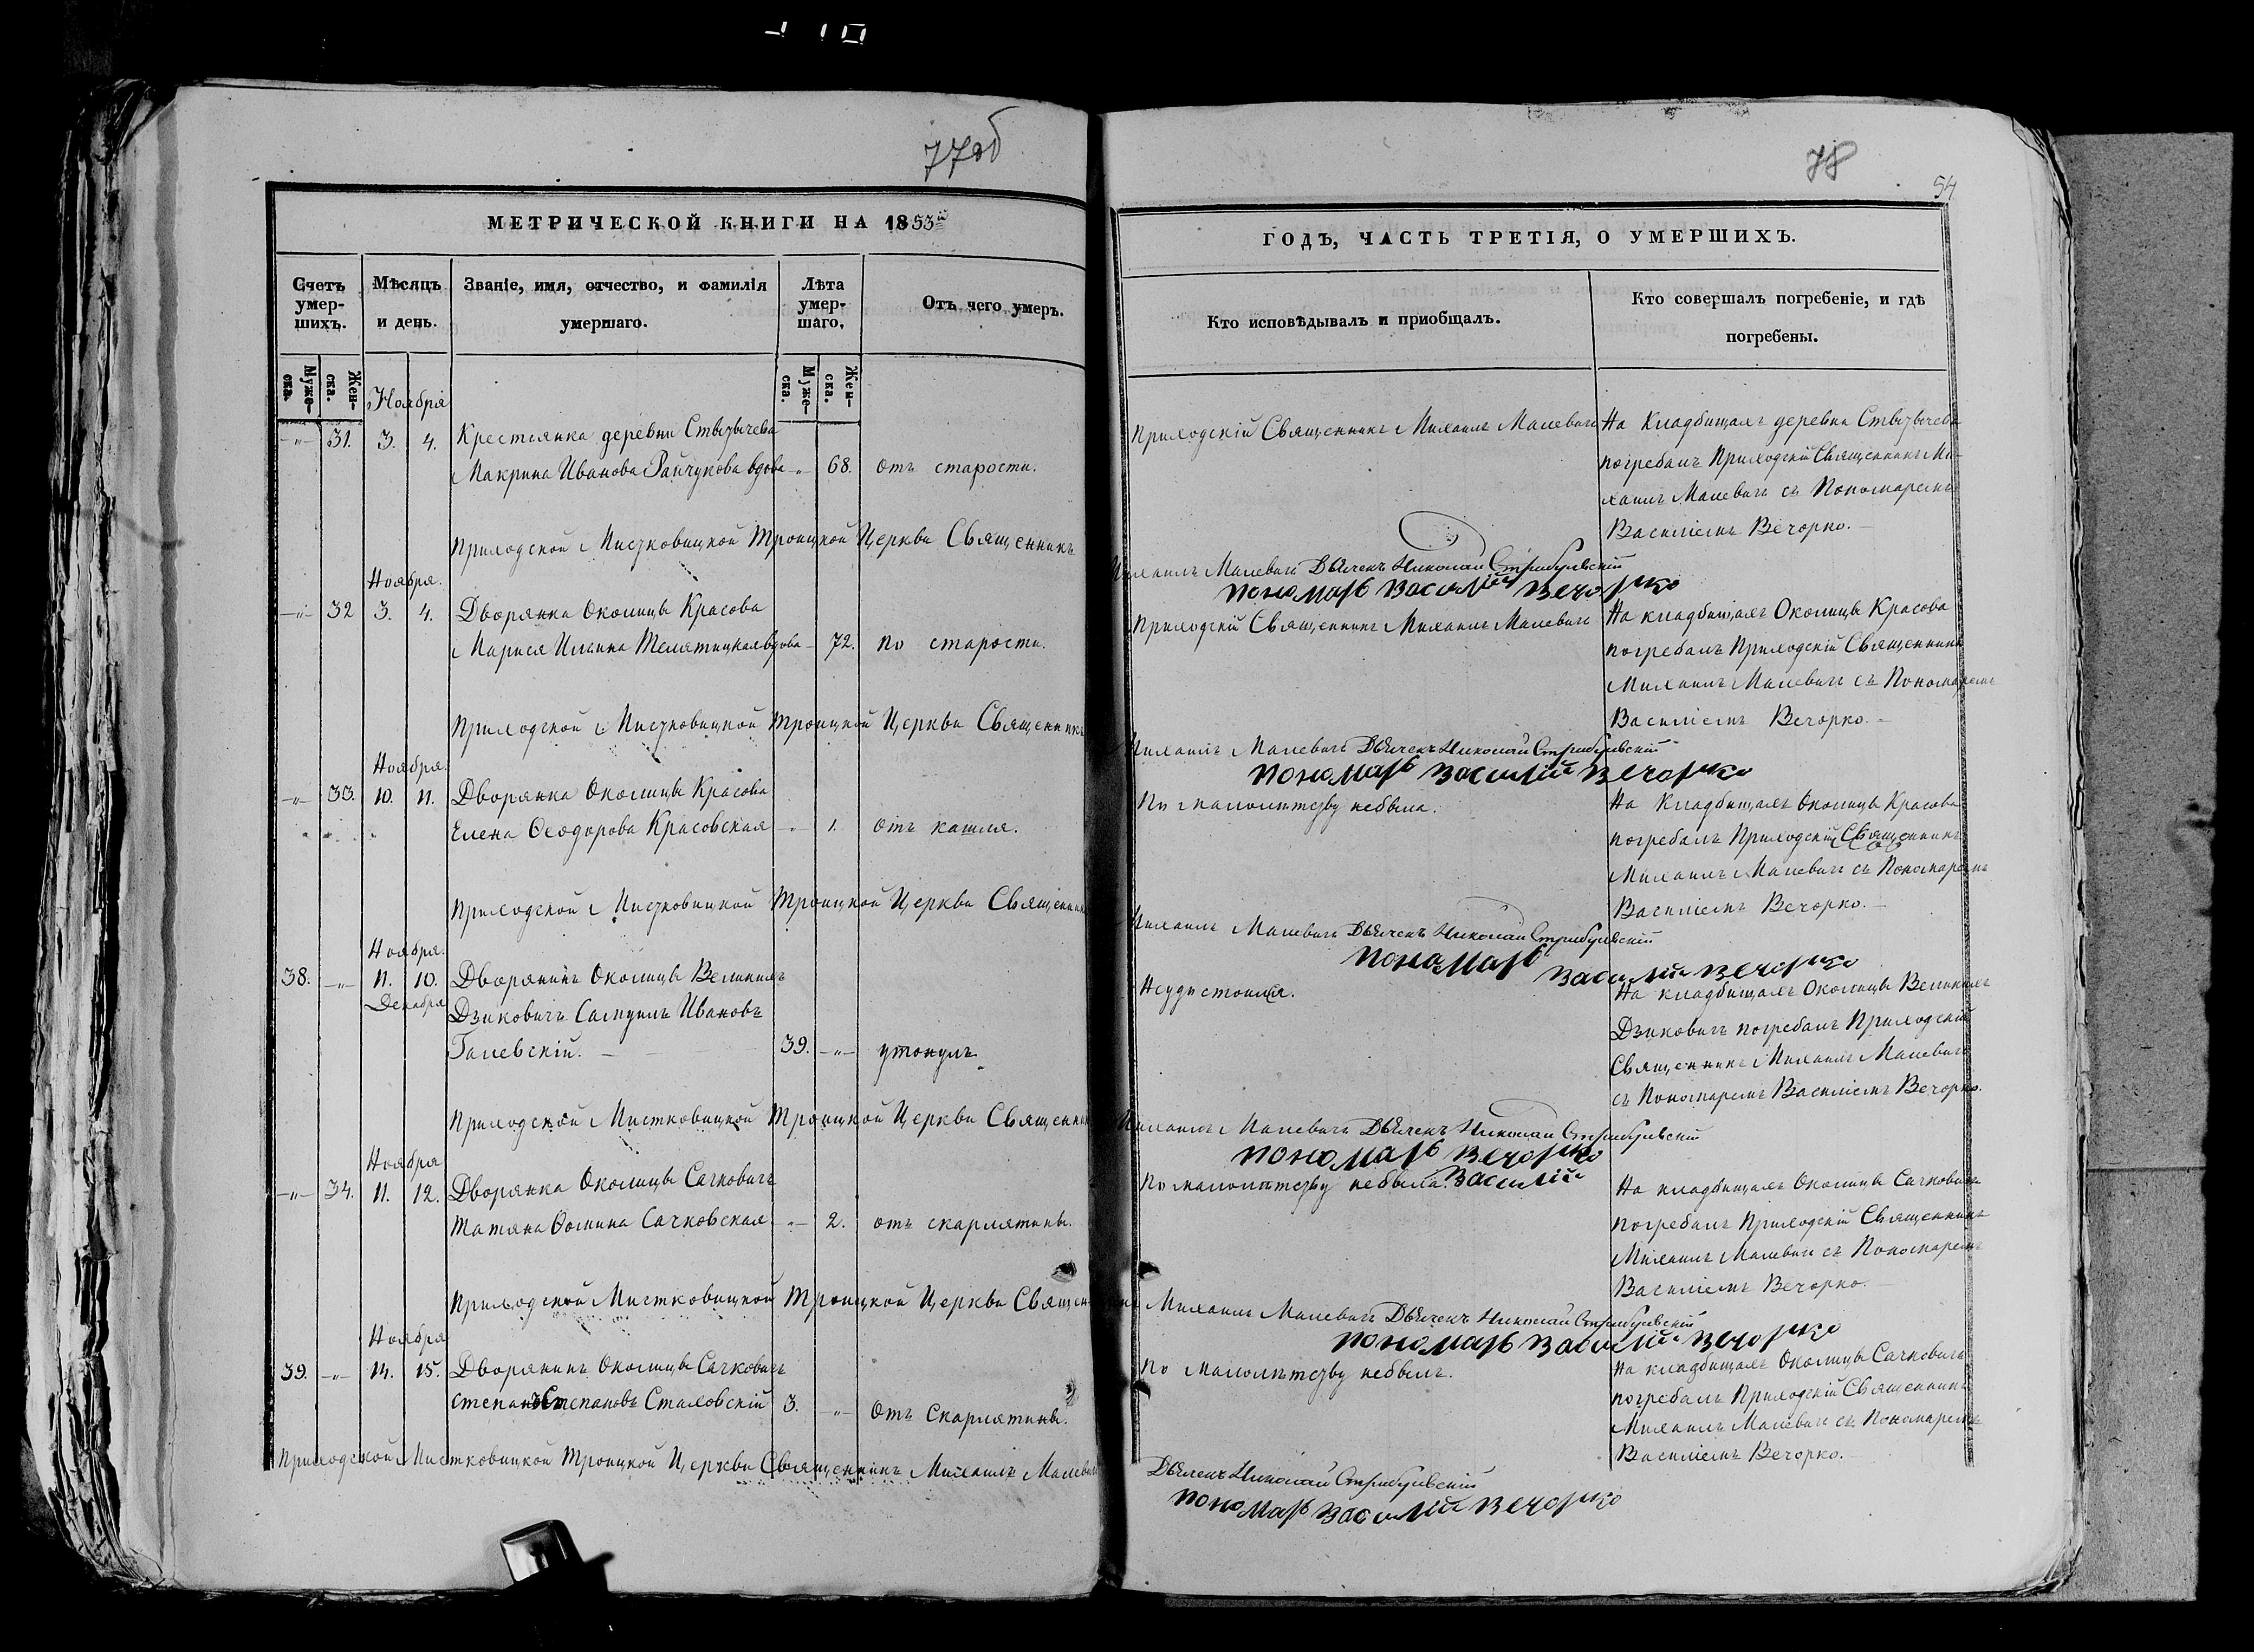 77об
МЕТРИЧЕСКОЙ КНИГИ НА 1853й
Счетъ умер-шихъ.
Мѣсяцъ и день.
Званіе, имя, отчество, и фамилія умершаго.
Лѣта умер-шаго.
Отъ чего умеръ.
Муже-ска.
Жен-ска.
Муже-ска.
Жен-ска.
Ноября
-"- 31. 3. 4. Крестьянка деревни
Макрина Иванова Райчукова вдова -"- 68. отъ старости.
Приходской Мистковицкой Троицкой Церкви Священникъ
Ноября.
-"- 32 3. 4. Дворянка Околицы Красова
Марися Ильина Телятицкая вдова - 72. по старости.
Приходской Мистковицкой Троицкой Церкви Священникъ
Ноября.
-"- 33. 10. 11. Дворянка Околицы Красова
Елена Ѳеодорова Красовская -"- 1. отъ кашля.
Приходской Мистковицкой Троицкой Церкви Священникъ
Ноября.
38. -"- 11. 10. Дворянинъ Околицы Великихъ
Декабря
Дзиковичъ Самуилъ Ивановъ
Галевскій. 39. -"- утонулъ.
Приходской Мистковицкой Троицкой Церкви Священникъ
Ноября
-"- 34. 11. 12. Дворянка Околицы Сачковичъ
Татяна Ѳомина Сачковская -"- 2. отъ скарлятины.
Приходской Мистковицкой Троицкой Церкви Священникъ
Ноября
39. -"- 14. 15. Дворянинъ Околицы Сачковичъ
Степанъ Степановъ Стаховскій 3. -"- Отъ Скарлятины.
Приходской Мистковицкой Троицкой Церкви Священникъ Михаилъ Малевичъ
78
54
ГОДЪ, ЧАСТЬ ТРЕТІЯ, О УМЕРШИХЪ.
Кто исповѣдывалъ и приобщалъ.
Кто совершалъ погребеніе, и гдѣ погребены.
Приходскій Священникъ Михаилъ Малевичъ
На Кладбищахъ деревни
погребалъ Приходскій Священникъ Ми-
хаилъ Малевичъ съ Пономаремъ
Василіемъ Вечорко.
Михаилъ Малевичъ Дьячекъ Николай
пономарь Василій Вечорко
Приходскій Священникъ Михаилъ Малевичъ
На кладбищахъ Околицы Красова
погребалъ Приходскій Священникъ
Михаилъ Малевичъ съ Пономаремъ
Василіемъ Вечорко.
Михаилъ Малевичъ Дьячекъ Николай
пономарь Василій Вечорко
По малолѣтству небыла.
На Кладбищахъ Околицы Красова
погребалъ Приходскій Священникъ
Михаилъ Малевичъ съ Пономаремъ
Василіемъ Вечорко.
Михаилъ Малевичъ Дьячекъ Николай
пономарь Василій Вечорко
Неудостоился.
На кладбищахъ Околицы Великихъ
Дзиковичъ погребалъ Приходскій
Священникъ Михаилъ Малевичъ
съ Пономаремъ Василіемъ Вечорко.
Михаилъ Малевичъ Дьячекъ Николай
пономарь Вечорко
Василій
По малолѣтству небыла.
На кладбищахъ Околицы Сачковичъ
погребалъ Приходскій Священникъ
Михаилъ Малевичъ съ Пономаремъ
Василіемъ Вечорко.
Михаилъ Малевичъ Дьячекъ Николай
пономарь Василій Вечорко
По малолѣтству небылъ.
На кладбищахъ Околицы Сачковичъ
погребалъ Приходскій Священникъ
Михаилъ Малевичъ съ Пономаремъ
Василіемъ Вечорко.
Дьячекъ Николай
пономарь Василій Вечорко